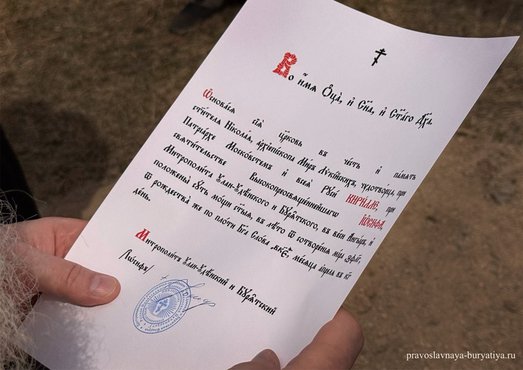 Во и҆́мѧ Ѻ҆ц҃а̀, и҆ Сн҃а, и҆ Ст҃а́гѡ Дх҃а.
Ѡ҆снова́сѧ сїѧ̀ цр҃ковь въ че́сть и҆ па́мѧть
Никола́ѧ, а҆рхїепі́скопа Мѷ́ръ Лѷкі́йскихъ, чꙋдотво́рца, при
Патрїа́рхѣ Моско́встѣмъ и҆ всеѧ̀ Рꙋсѝ КИРИ́ЛЛѢ, при
ст҃и́тельствѣ Высокопреосвѧще́ннѣйшагѡ І҆Ѡ́СИФА,
Митрополи́та Оу҆ла́н-Оу҆дэ́нскагѡ и҆ Бꙋрѧ́тскагѡ, въ ве́си и҆
поло́жены сꙋ́ть мо́щи въ лѣ́то ѿ сотворе́нїѧ мі́ра
ѿ рождества́ же по пло́ти Бг҃а Сло́ва мѣ́сѧца а҆прі́ллѧ въ
де́нь.
Митрополи́тъ Оу҆ла́н-Оу҆дэ́нский и҆ Бꙋрѧ́тский
pravoslavnaya-buryatiya.ru